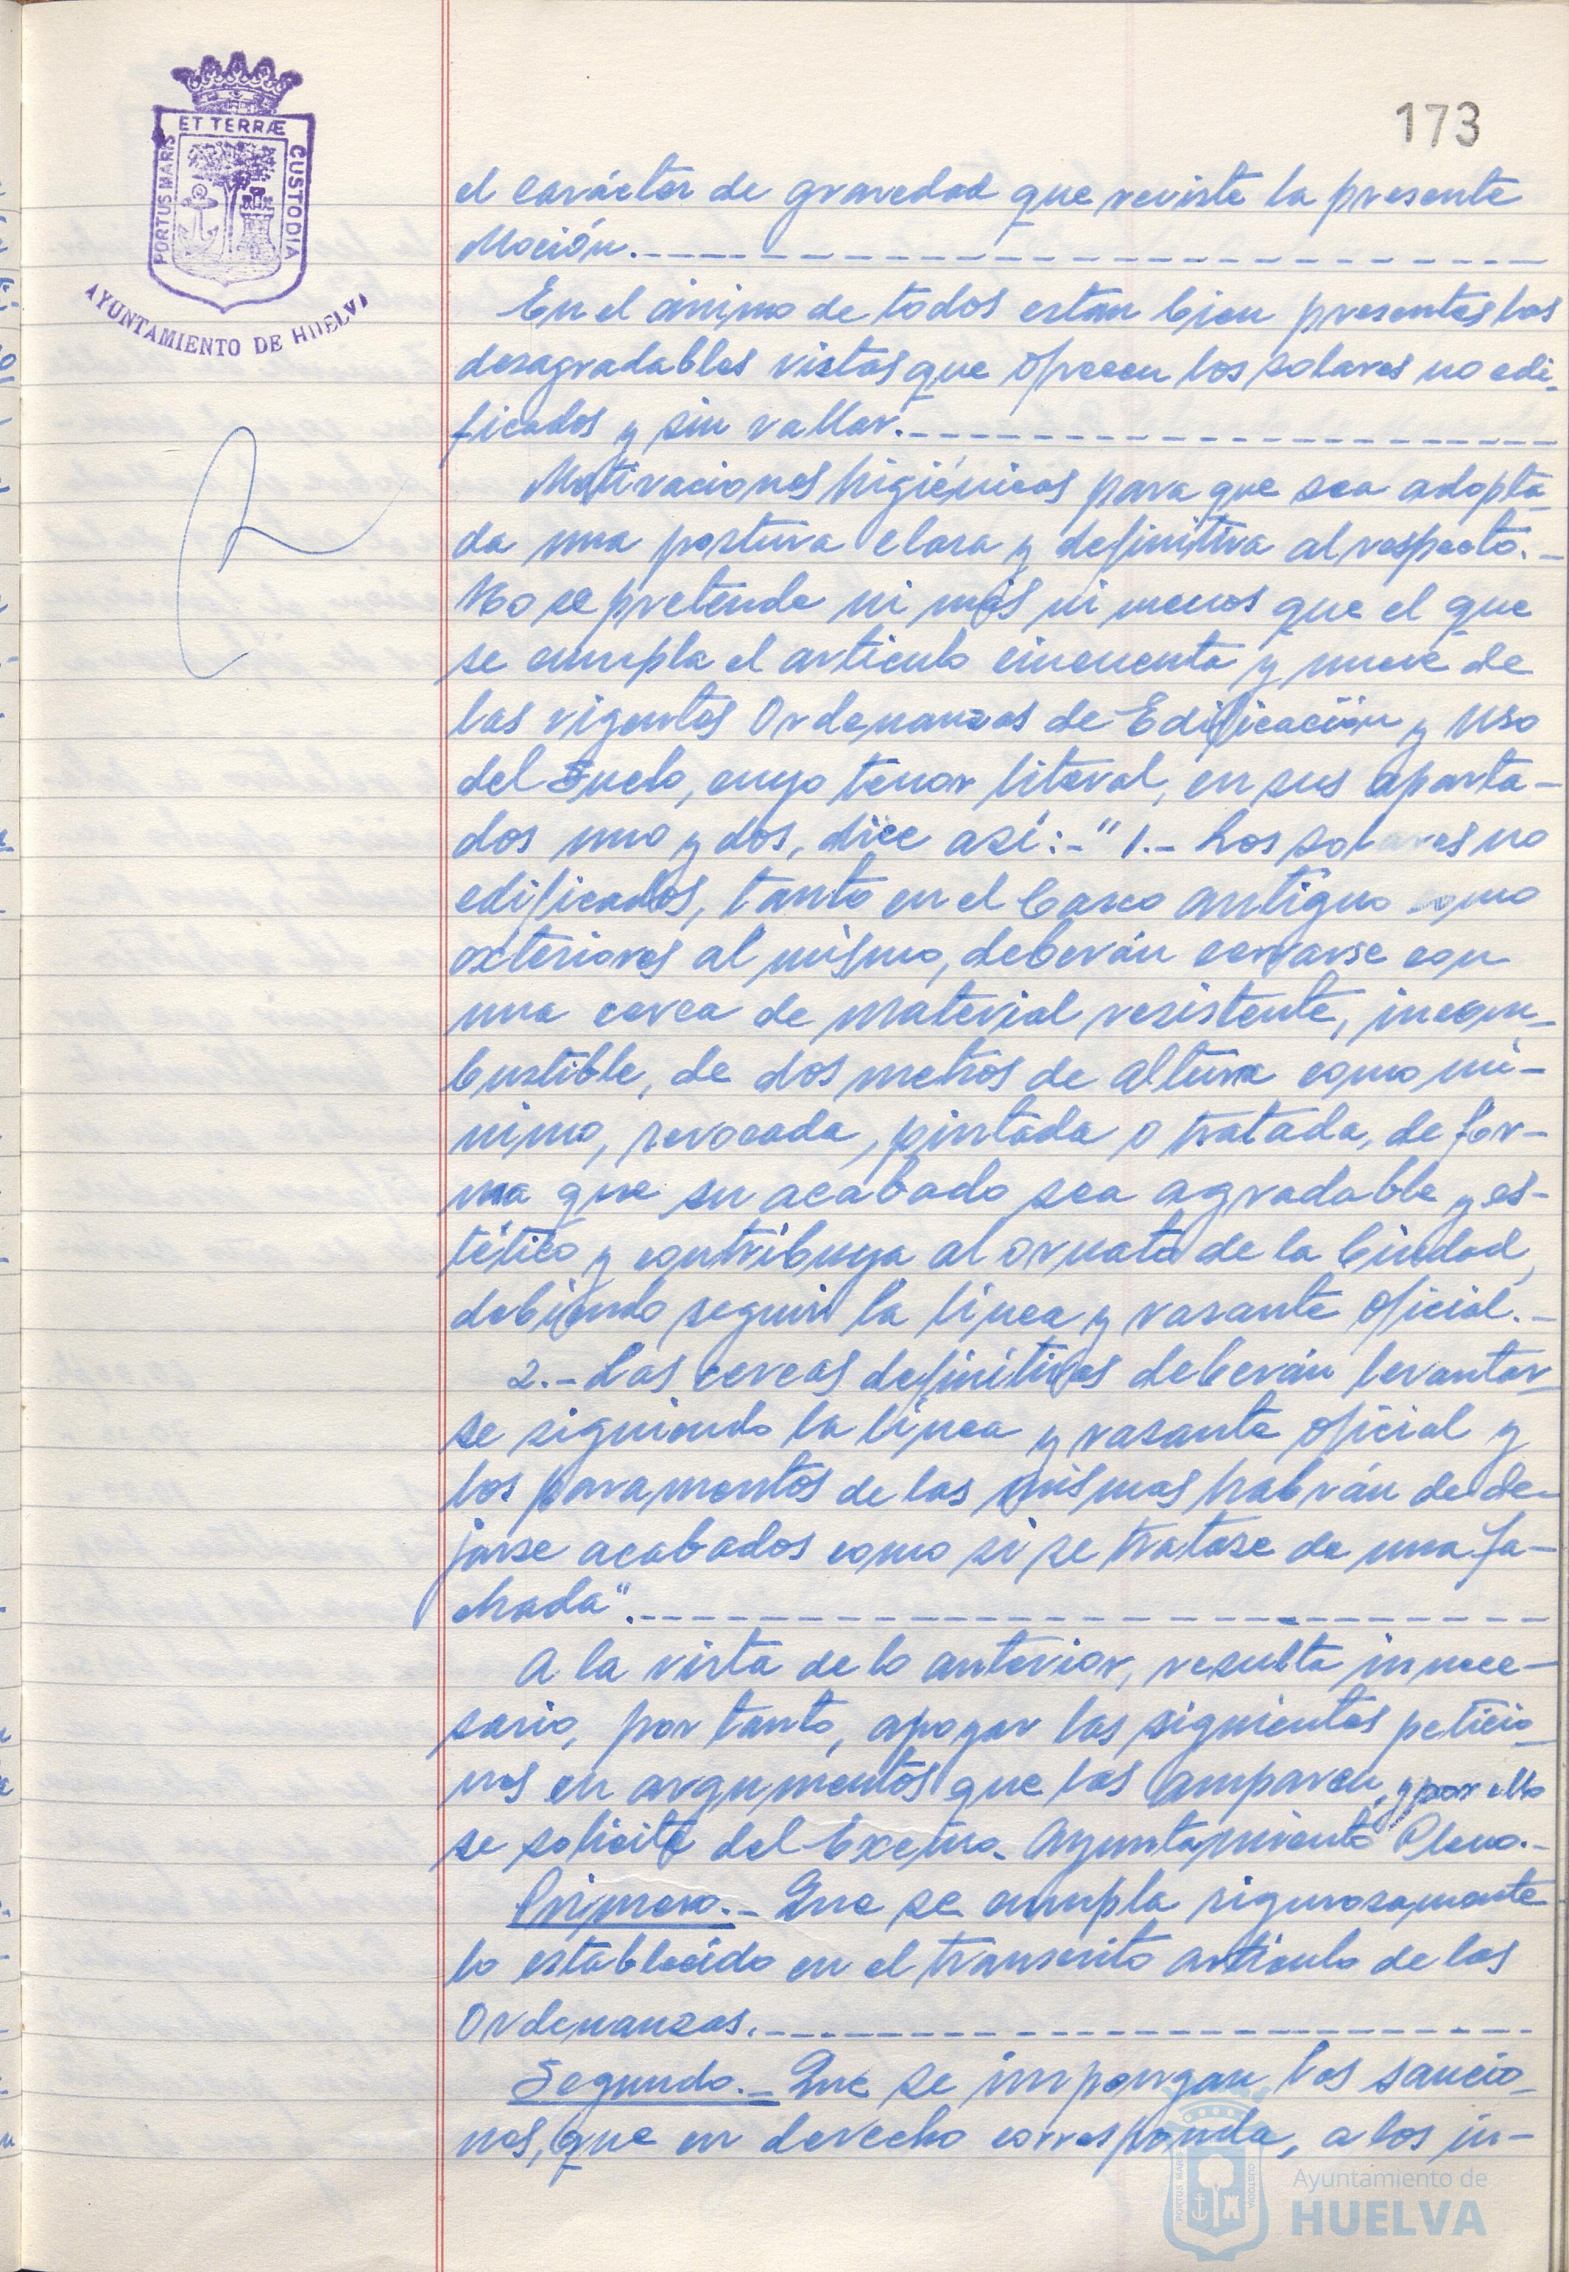 ET TERRÆ
PORTUS MARIS
CUSTODIA
AYUNTAMIENTO DE HUELVA
173
el carácter de gravedad que reviste la presente
Moción.
En el ánimo de todos están bien presentes las
desagradables vistas que ofrecen los solares no edi-
ficados y sin vallar.
Motivaciones higiénicas para que sea adopta-
da una postura clara y definitiva al respecto.-
No se pretende ni más ni menos que el que
se cumpla el artículo cincuenta y nueve de
las vigentes Ordenanzas de Edificación y Uso
del Suelo, cuyo tenor literal, en sus aparta-
dos uno y dos, dice así:-" 1.- Los solares no
edificados, tanto en el Casco antiguo como
exteriores al mismo, deberán cercarse con
una cerca de material resistente, incom-
bustible, de dos metros de altura como mí-
nimo, revocada, pintada o tratada, de for-
ma que su acabado sea agradable y es-
tético y contribuya al ornato de la Ciudad,
debiendo seguir la línea y rasante oficial.-
2.- Las cercas definitivas deberán levantar-
se siguiendo la línea y rasante oficial y
los paramentos de las mismas habrán de de-
jarse acabados como si se tratase de una fa-
chada".
A la vista de lo anterior, resulta innece-
sario, por tanto, apoyar las siguientes peticio-
nes en argumentos que las amparen, y por ello
se solicita del Excmo. Ayuntamiento Pleno.-
Primero.- Que se cumpla rigurosamente
lo establecido en el transcrito artículo de las
Ordenanzas.
Segundo.- Que se impongan las sancio-
nes, que en derecho corresponda, a los in-
Ayuntamiento de
HUELVA